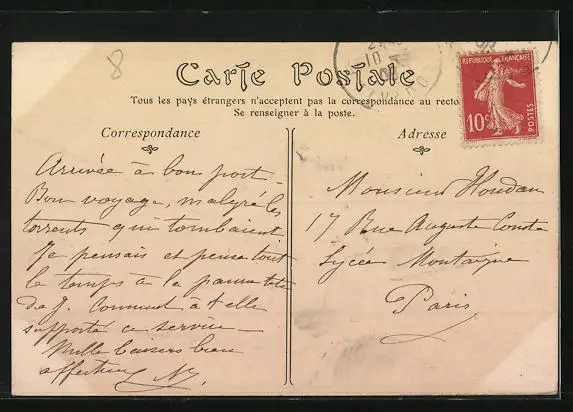 8
Carte Postale
Tous les pays étrangers n'acceptent pas la correspondance au recto
Se renseigner à la poste.
Correspondance
Adresse
REPUBLIQUE FRANÇAISE
10c
POSTES
Arrivée à bon port -
Bon voyage, malgré les
torrents qui tombaient
Je pensais et pense tout
le temps à la pauvre tête
de J. Comment a t elle
supporté ce service -
Mille baisers bien
affectueux
Monsieur Houdan
17 Rue Auguste Comte
Lycée Montaigne
Paris